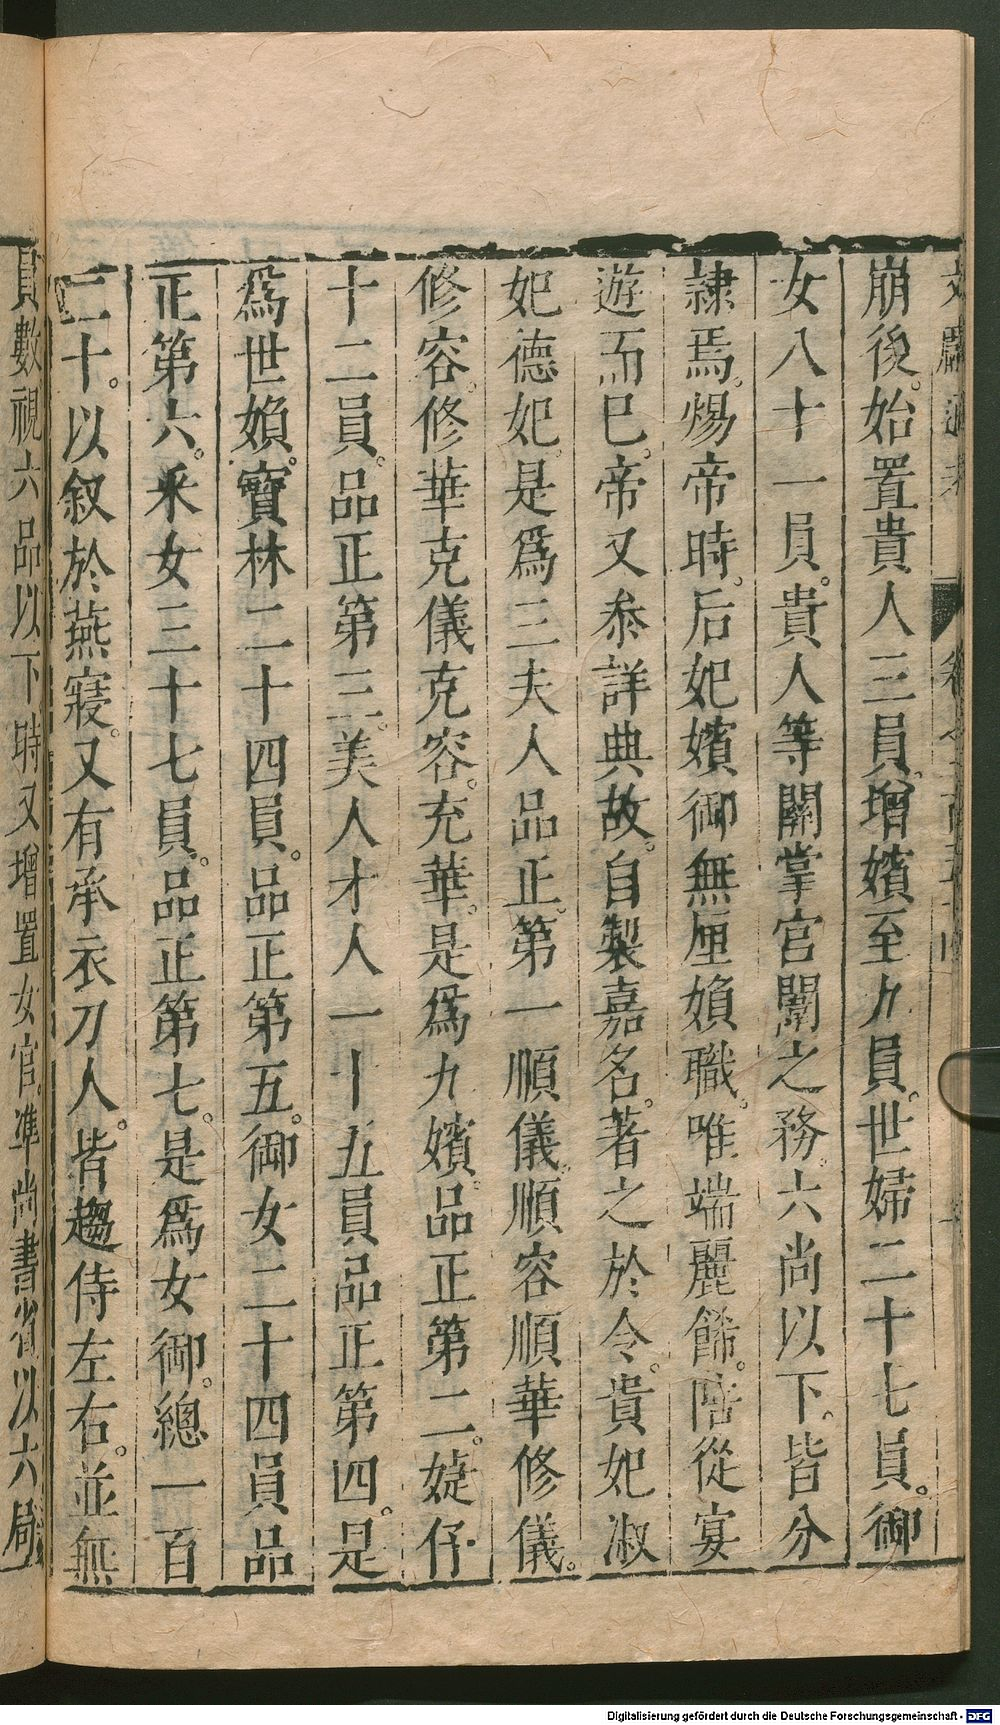 崩後。始置貴人三員。增嬪至九員。世婦二十七員。御
女八十一員。貴人等關掌宮闈之務。六尚以下。皆分
隷焉。煬帝時。后妃嬪御無厘嬪職。唯端麗餙。陪從宴
遊而已。帝又叅詳典故。自製嘉名。著之於令。貴妃淑
妃德妃。是爲三夫人品正。第一順儀。順容順華修儀。
修容。修華克儀克容。充華。是爲九嬪。品正第二。婕伃
十二員。品正第三。美人才人一十五員品正第四。是
爲世婦。寳林二十四員。品正第五。御女二十四員品
正第六。釆女三十七員。品正第七。是爲女御。總一百
二十。以叙於燕寢。又有承衣刀人。皆趨侍左右。並無
員數視六品以下時又增置女官。準尚書省以六局
Digitalisierung gefördert durch die Deutsche Forschungsgemeinschaft - DFG